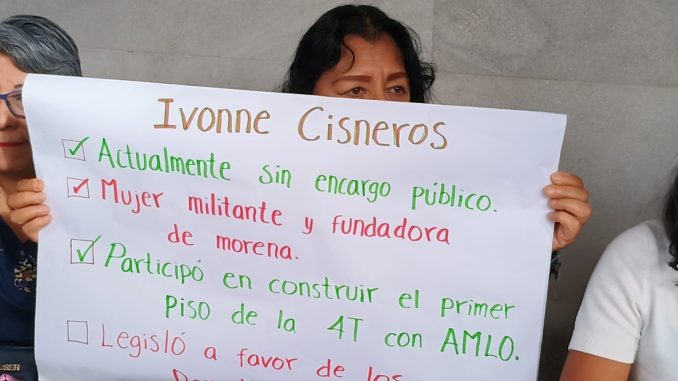 Ivonne Cisneros
Actualmente sin encargo público.
Mujer militante y fundadora
de morena.
Participó en construir el primer
piso de la 4T con AMLO.
Legisló a favor de los